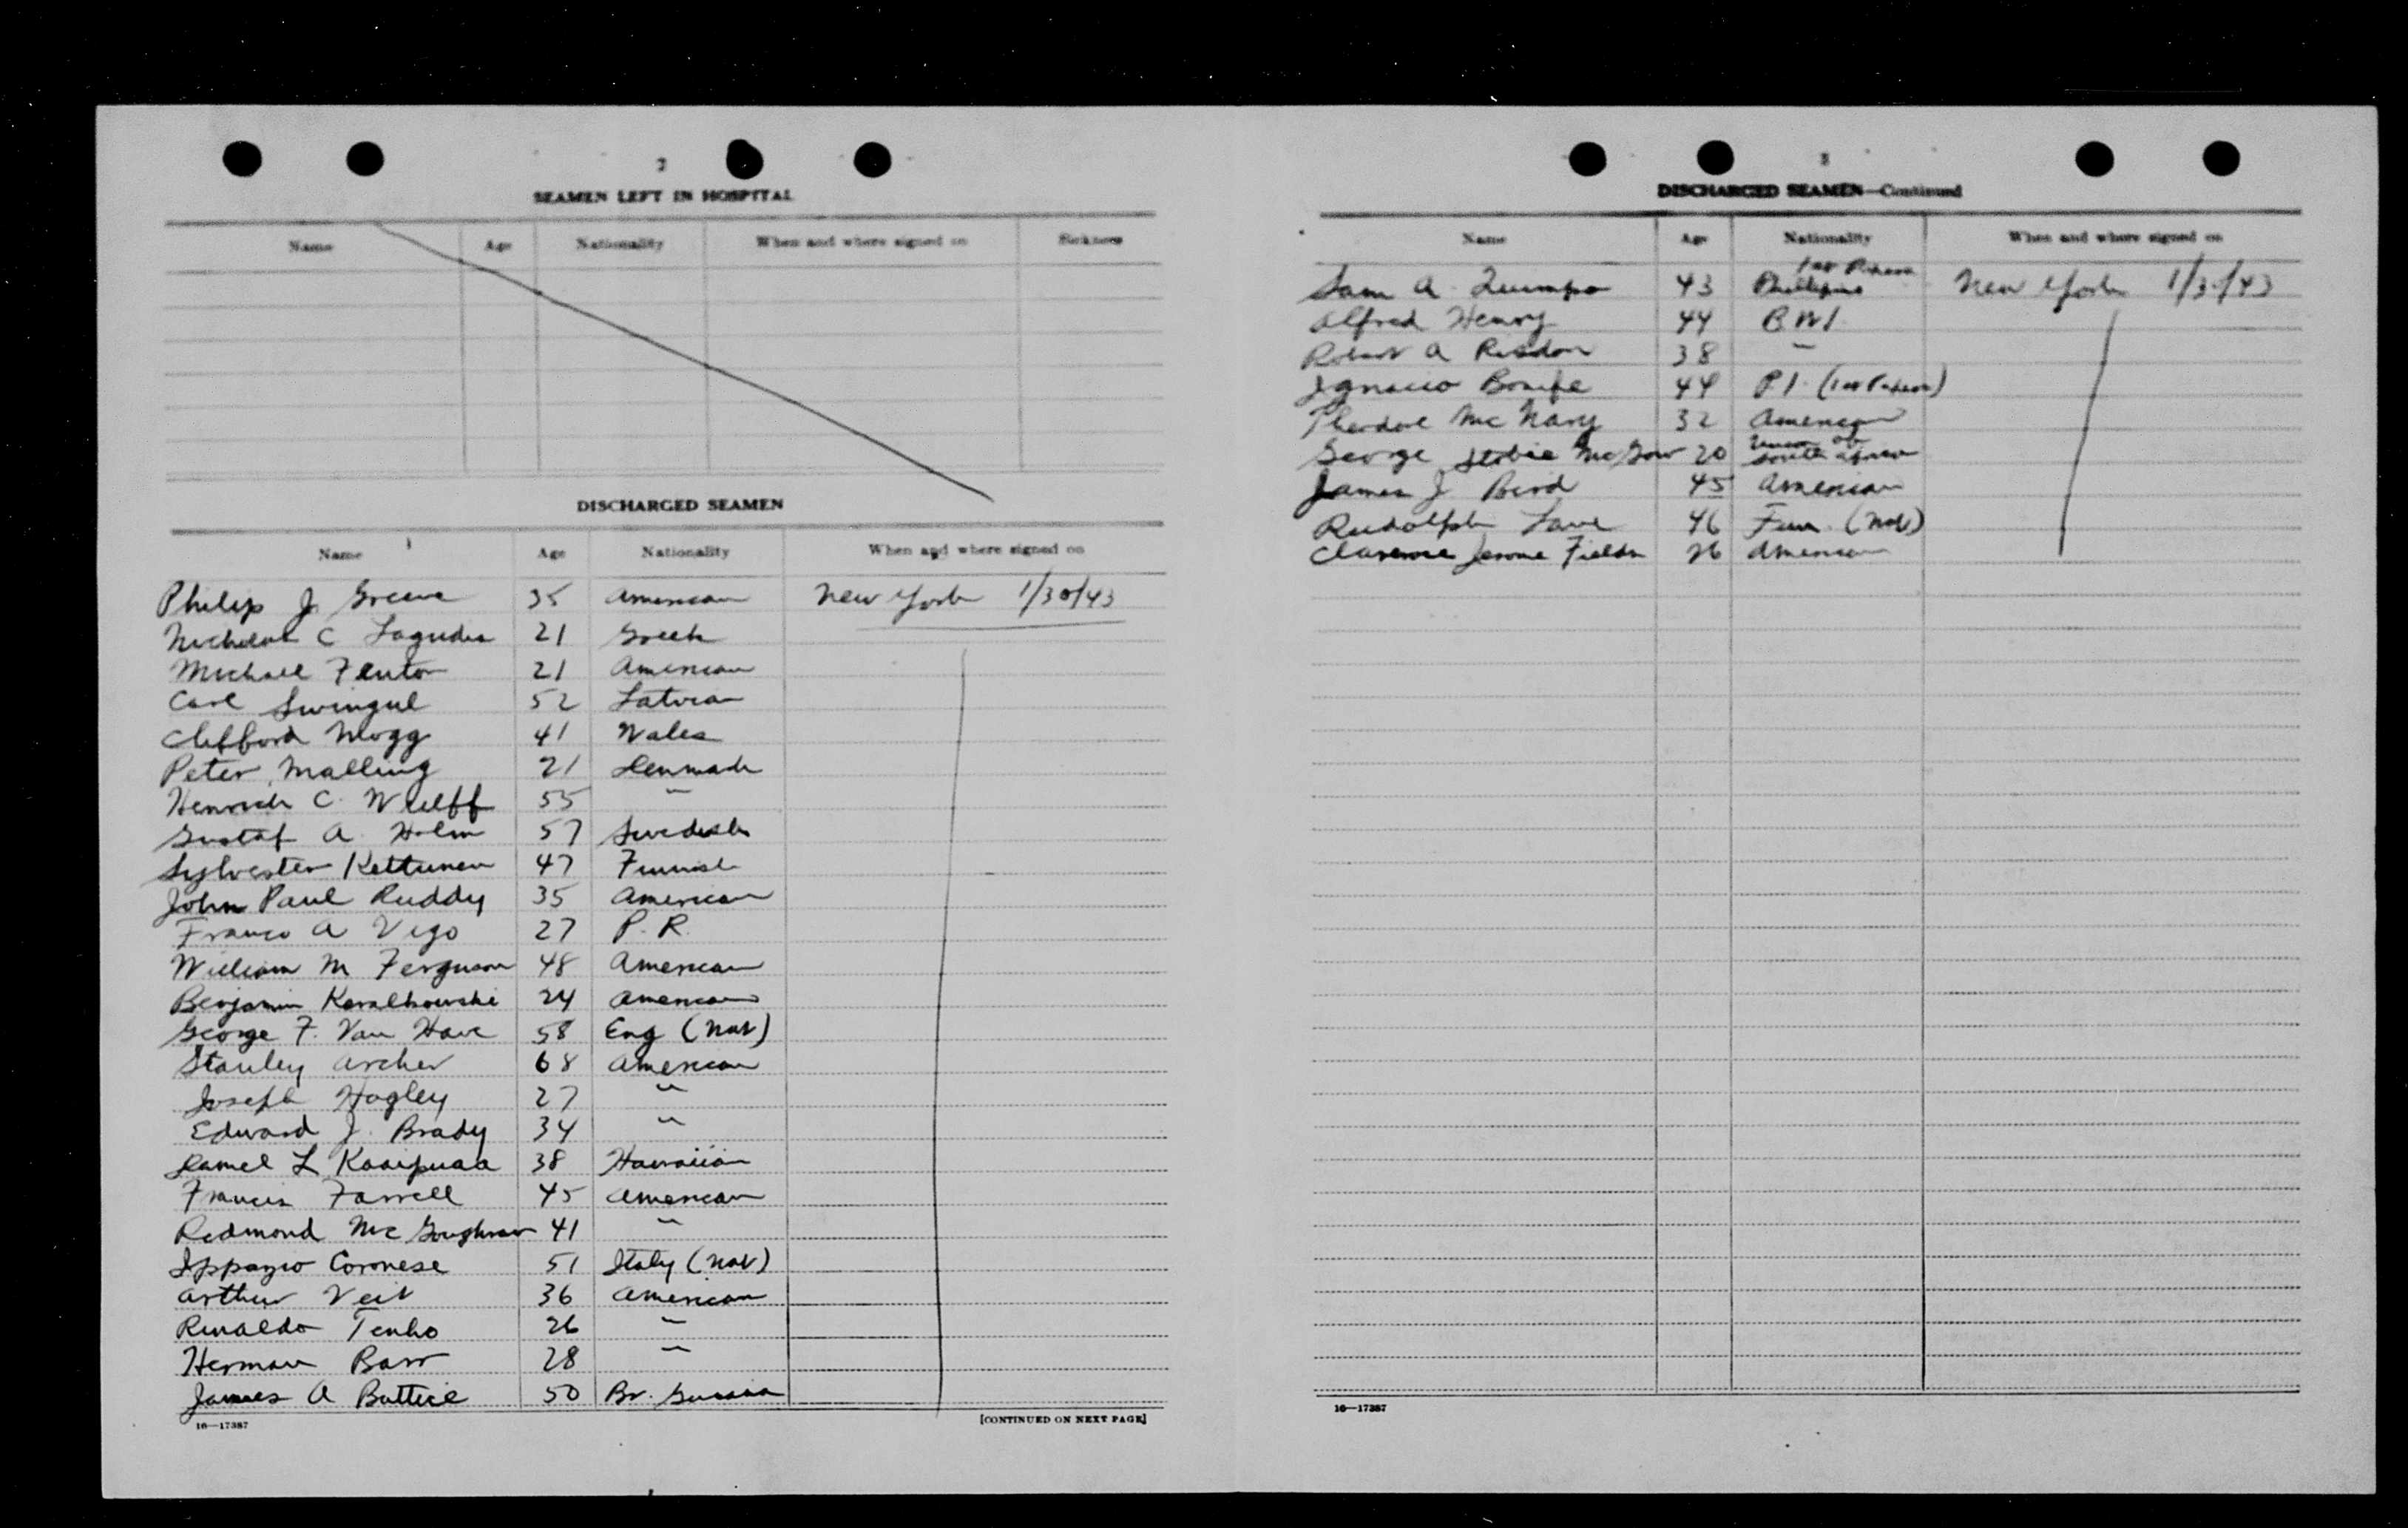 2
SEAMEN LEFT IN HOSPITAL
Name Age Nationality When and where signed on Sickness
DISCHARGED SEAMEN
Name Age Nationality When and where signed on
Philip J. Greene 35 American New York 1/30/43
Nicholas C Lagudis 21 Greek
Michael Fluto 21 American
Carl Swingul 52 Latvian
Clifford Mogg 41 Wales
Peter Malling 21 Denmark
Henrich C. Wulff 55 "
Gustaf A. Holm 57 Swedish
Sylvester Kettunen 47 Finnish
John Paul Ruddy 35 American
Franco A Vigo 27 P.R.
William M Ferguson 48 American
Benjamin 24 American
George F. Van Have 58 Eng (Nat)
Stanley Archer 68 American
Joseph Hagley 27 "
Edward J. Brady 34 "
Daniel L Kaaipuaa 38 Hawaiian
Francis Farrell 45 American
Redmond Mc 41 "
Ippazio Coronese 51 Italy (Nat)
Arthur Veit 36 American
Rinaldo Tenho 26 "
Herman Barr 28 "
James A Buttice 50 Br. Guiana
16—17387 [CONTINUED ON NEXT PAGE]
3
DISCHARGED SEAMEN—Continued
Name Age Nationality When and where signed on
1st Papers
Sam A. Quimpo 43 Phillipine New York 1/30/43
Alfred Henry 44 B.W.I.
Robert A Risdon 38 "
Ignacio 44 P.I. (1st Papers)
Theodore Mc Nary 32 American
Union of
George Stobie McGow 20 South Africa
James J Bird 45 American
Rudolph 46 Finn. (Nat)
Clarence Jerome Fields 26 American
16—17387